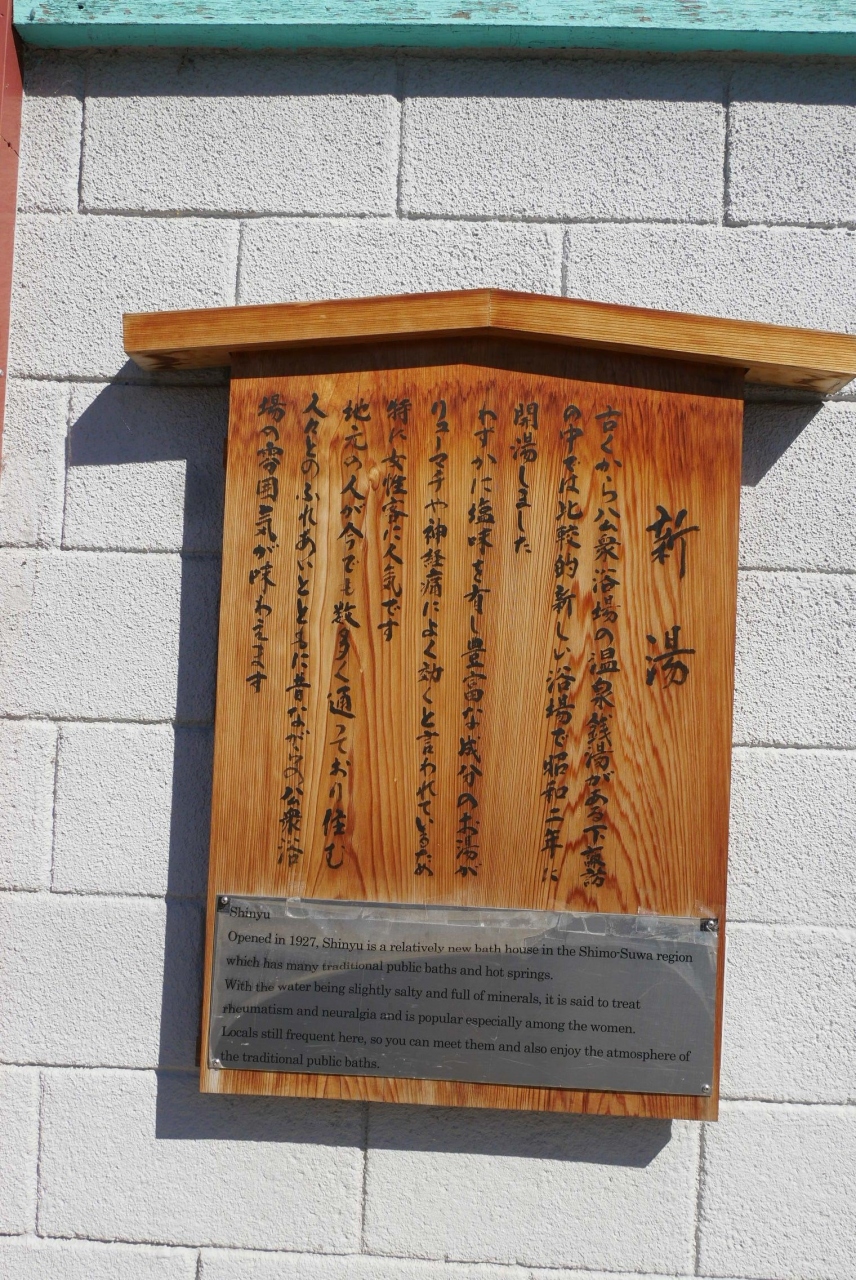 新湯
古くから公衆浴場の温泉銭湯がある下諏訪
の中では比較的新しい浴場で昭和二年に
開湯しました
わずかに塩味を有し豊富な成分のお湯が
リューマチや神経痛によく効くと言われているため
特に女性客に人気です
地元の人が今でも数多く通っており住む
人々とのふれあいとともに昔ながらの公衆浴
場の雰囲気が味わえます
Shinyu
Opened in 1927, Shinyu is a relatively new bath house in the Shimo-Suwa region
which has many traditional public baths and hot springs.
With the water being slightly salty and full of minerals, it is said to treat
rheumatism and neuralgia and is popular especially among the women.
Locals still frequent here, so you can meet them and also enjoy the atmosphere of
the traditional public baths.